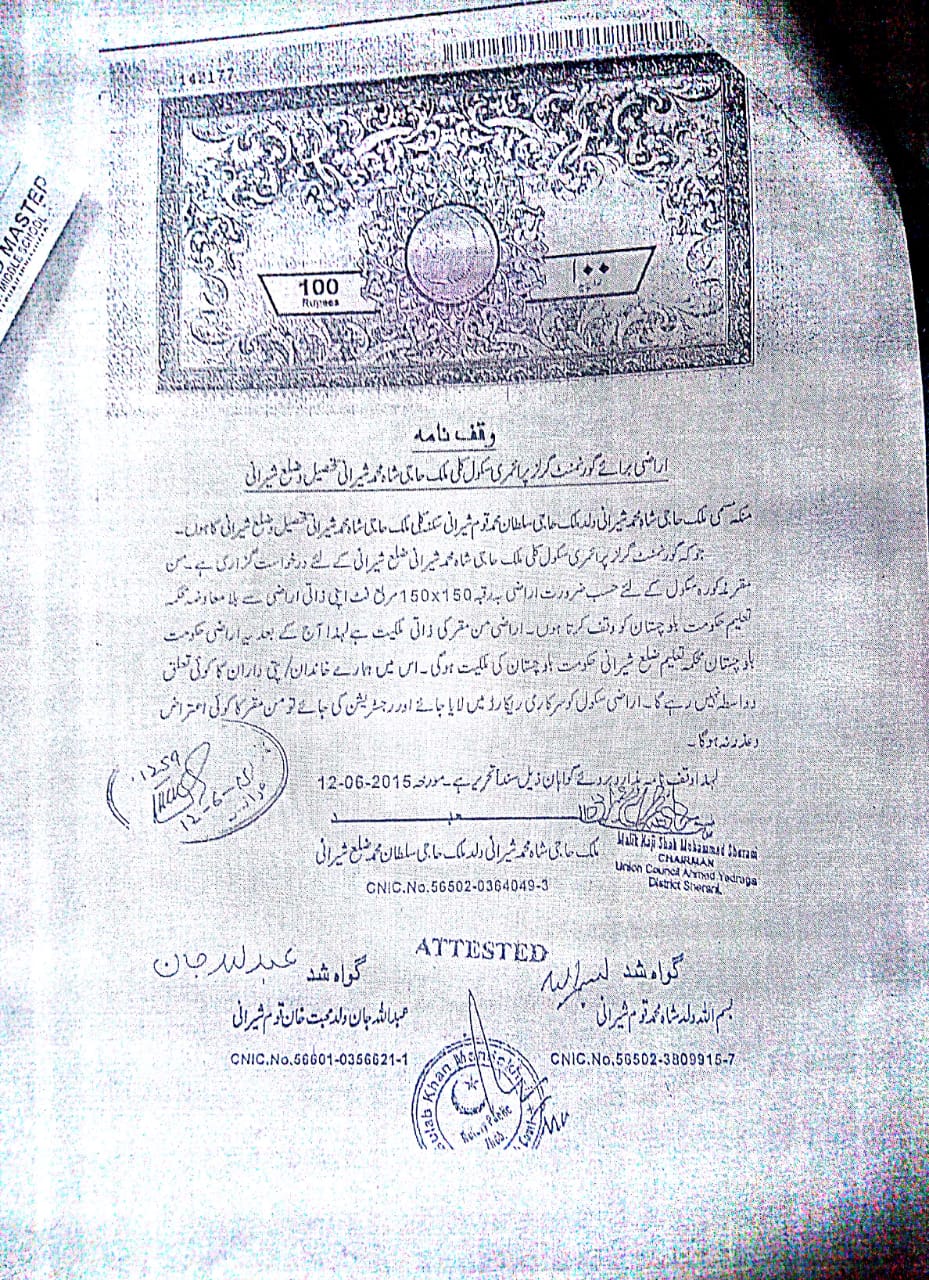 148177
MASTER
MIDDLE SCHOOL
100
Rupees
۱۰۰
وقف نامہ
اراضی برائے گورنمنٹ گرلز پرائمری سکول کلی ملک حاجی شاہ محمد شیرانی تحصیل و ضلع شیرانی
منکہ مسمی ملک حاجی شاہ محمد شیرانی ولد ملک حاجی سلطان محمد قوم شیرانی سکنہ کلی ملک حاجی شاہ محمد شیرانی تحصیل و ضلع شیرانی کا ہوں۔
جو کہ گورنمنٹ گرلز پرائمری سکول کلی ملک حاجی شاہ محمد شیرانی ضلع شیرانی کے لئے درخواست گزاری ہے۔ من
مقر مذکورہ سکول کے لئے حسب ضرورت اراضی بہ رقبہ 150x150 مربع فٹ اپنی ذاتی اراضی سے بلا معاوضہ محکمہ
تعلیم حکومت بلوچستان کو وقف کرتا ہوں۔ اراضی من مقر کی ذاتی ملکیت ہے لہذا آج کے بعد یہ اراضی حکومت
بلوچستان محکمہ تعلیم ضلع شیرانی حکومت بلوچستان کی ملکیت ہوگی۔ اس میں ہمارے خاندان/ پتی داران کا کوئی تعلق
و واسطہ نہیں رہے گا۔ اراضی سکول کو سرکاری ریکارڈ میں لایا جائے اور رجسٹریشن کی جائے تو من مقر کا کوئی اعتراض
و عذر نہ ہوگا۔
لہذا وقف نامہ ہذا روبروئے گواہان ذیل سنداً تحریر ہے۔ مورخہ 12-06-2015
1259
12-6-15
Malik Haji Shah Mohammad Sherani
CHAIRMAN
Union Council Ahmad
District Sherani
ملک حاجی شاہ محمد شیرانی ولد ملک حاجی سلطان محمد ضلع شیرانی
CNIC.No.56502-0364049-3
ATTESTED
گواہ شد بسم اللہ
گواہ شد عبداللہ جان
بسم اللہ ولد شاہ محمد قوم شیرانی
عبداللہ جان ولد محبت خان قوم شیرانی
CNIC.No.56502-3809915-7
CNIC.No.56601-0356621-1
Khan
Notary Public